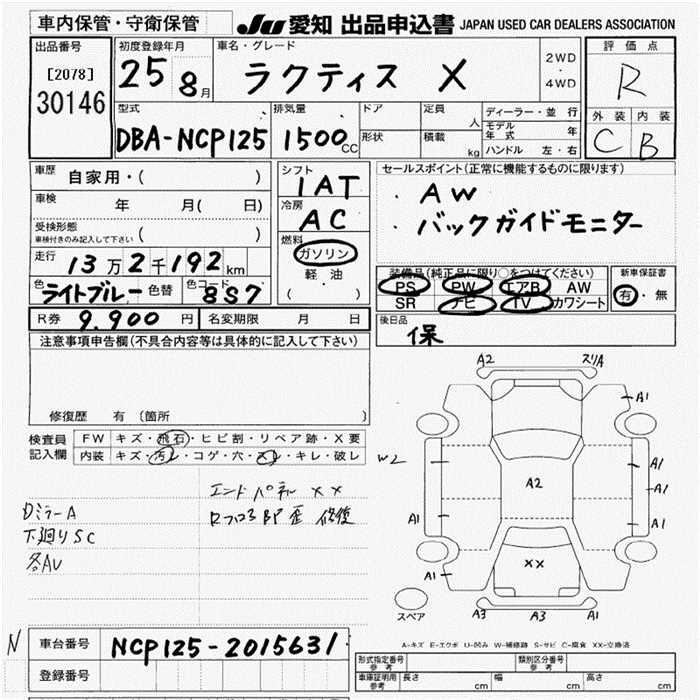 車内保管・守衛保管
JU 愛知 出品申込書 JAPAN USED CAR DEALERS ASSOCIATION
出品番号
[2078]
30146
初度登録年月
25 8月
車名・グレード
ラクティス X
2WD
・
4WD
評価点
R
外装 内装
C B
型式
DBA-NCP125
排気量
1500cc
ドア
形状
定員 人
積載 kg
ディーラー・並行
モデル年式 年
ハンドル 左・右
車歴 自家用・( )
車検 年 月( 日)
受検形態
車検付きのみ記入して下さい ( )
走行 13万2千192km
色 ライトブルー 色替 色コード 8S7
シフト
IAT
冷房
AC
燃料
ガソリン
軽・油
( )
セールスポイント(正常に機能するものに限ります)
・AW
・バックガイドモニター
装備品(純正品に限り○をつけてください)
PS PW エアB AW
SR ナビ TV カワシート
新車保証書
有・無
R券 9,900円 名変期限 月 日
後日品
保
注意事項申告欄(不具合内容等は具体的に記入して下さい)
修復歴 有(箇所
検査員記入欄
FW キズ・飛石・ヒビ割・リペア跡・X要
内装 キズ・汚レ・コゲ・穴・スレ・キレ・破レ
エンドパネル XX
DミラーA
下廻りSC
各AU
A2 スリA
A1
W2
A2
A1
A1
A1
A1
XX
A1
A3 A3 A1
スペア
A-キズ E-エクボ U-凹み W-補修跡 S-サビ C-腐食 XX-交換済
N
車台番号 NCP125-2015631
登録番号
形式指定番号 参考
類別区分番号 参考
車庫証明用 参考 長さ cm 幅 cm 高さ cm